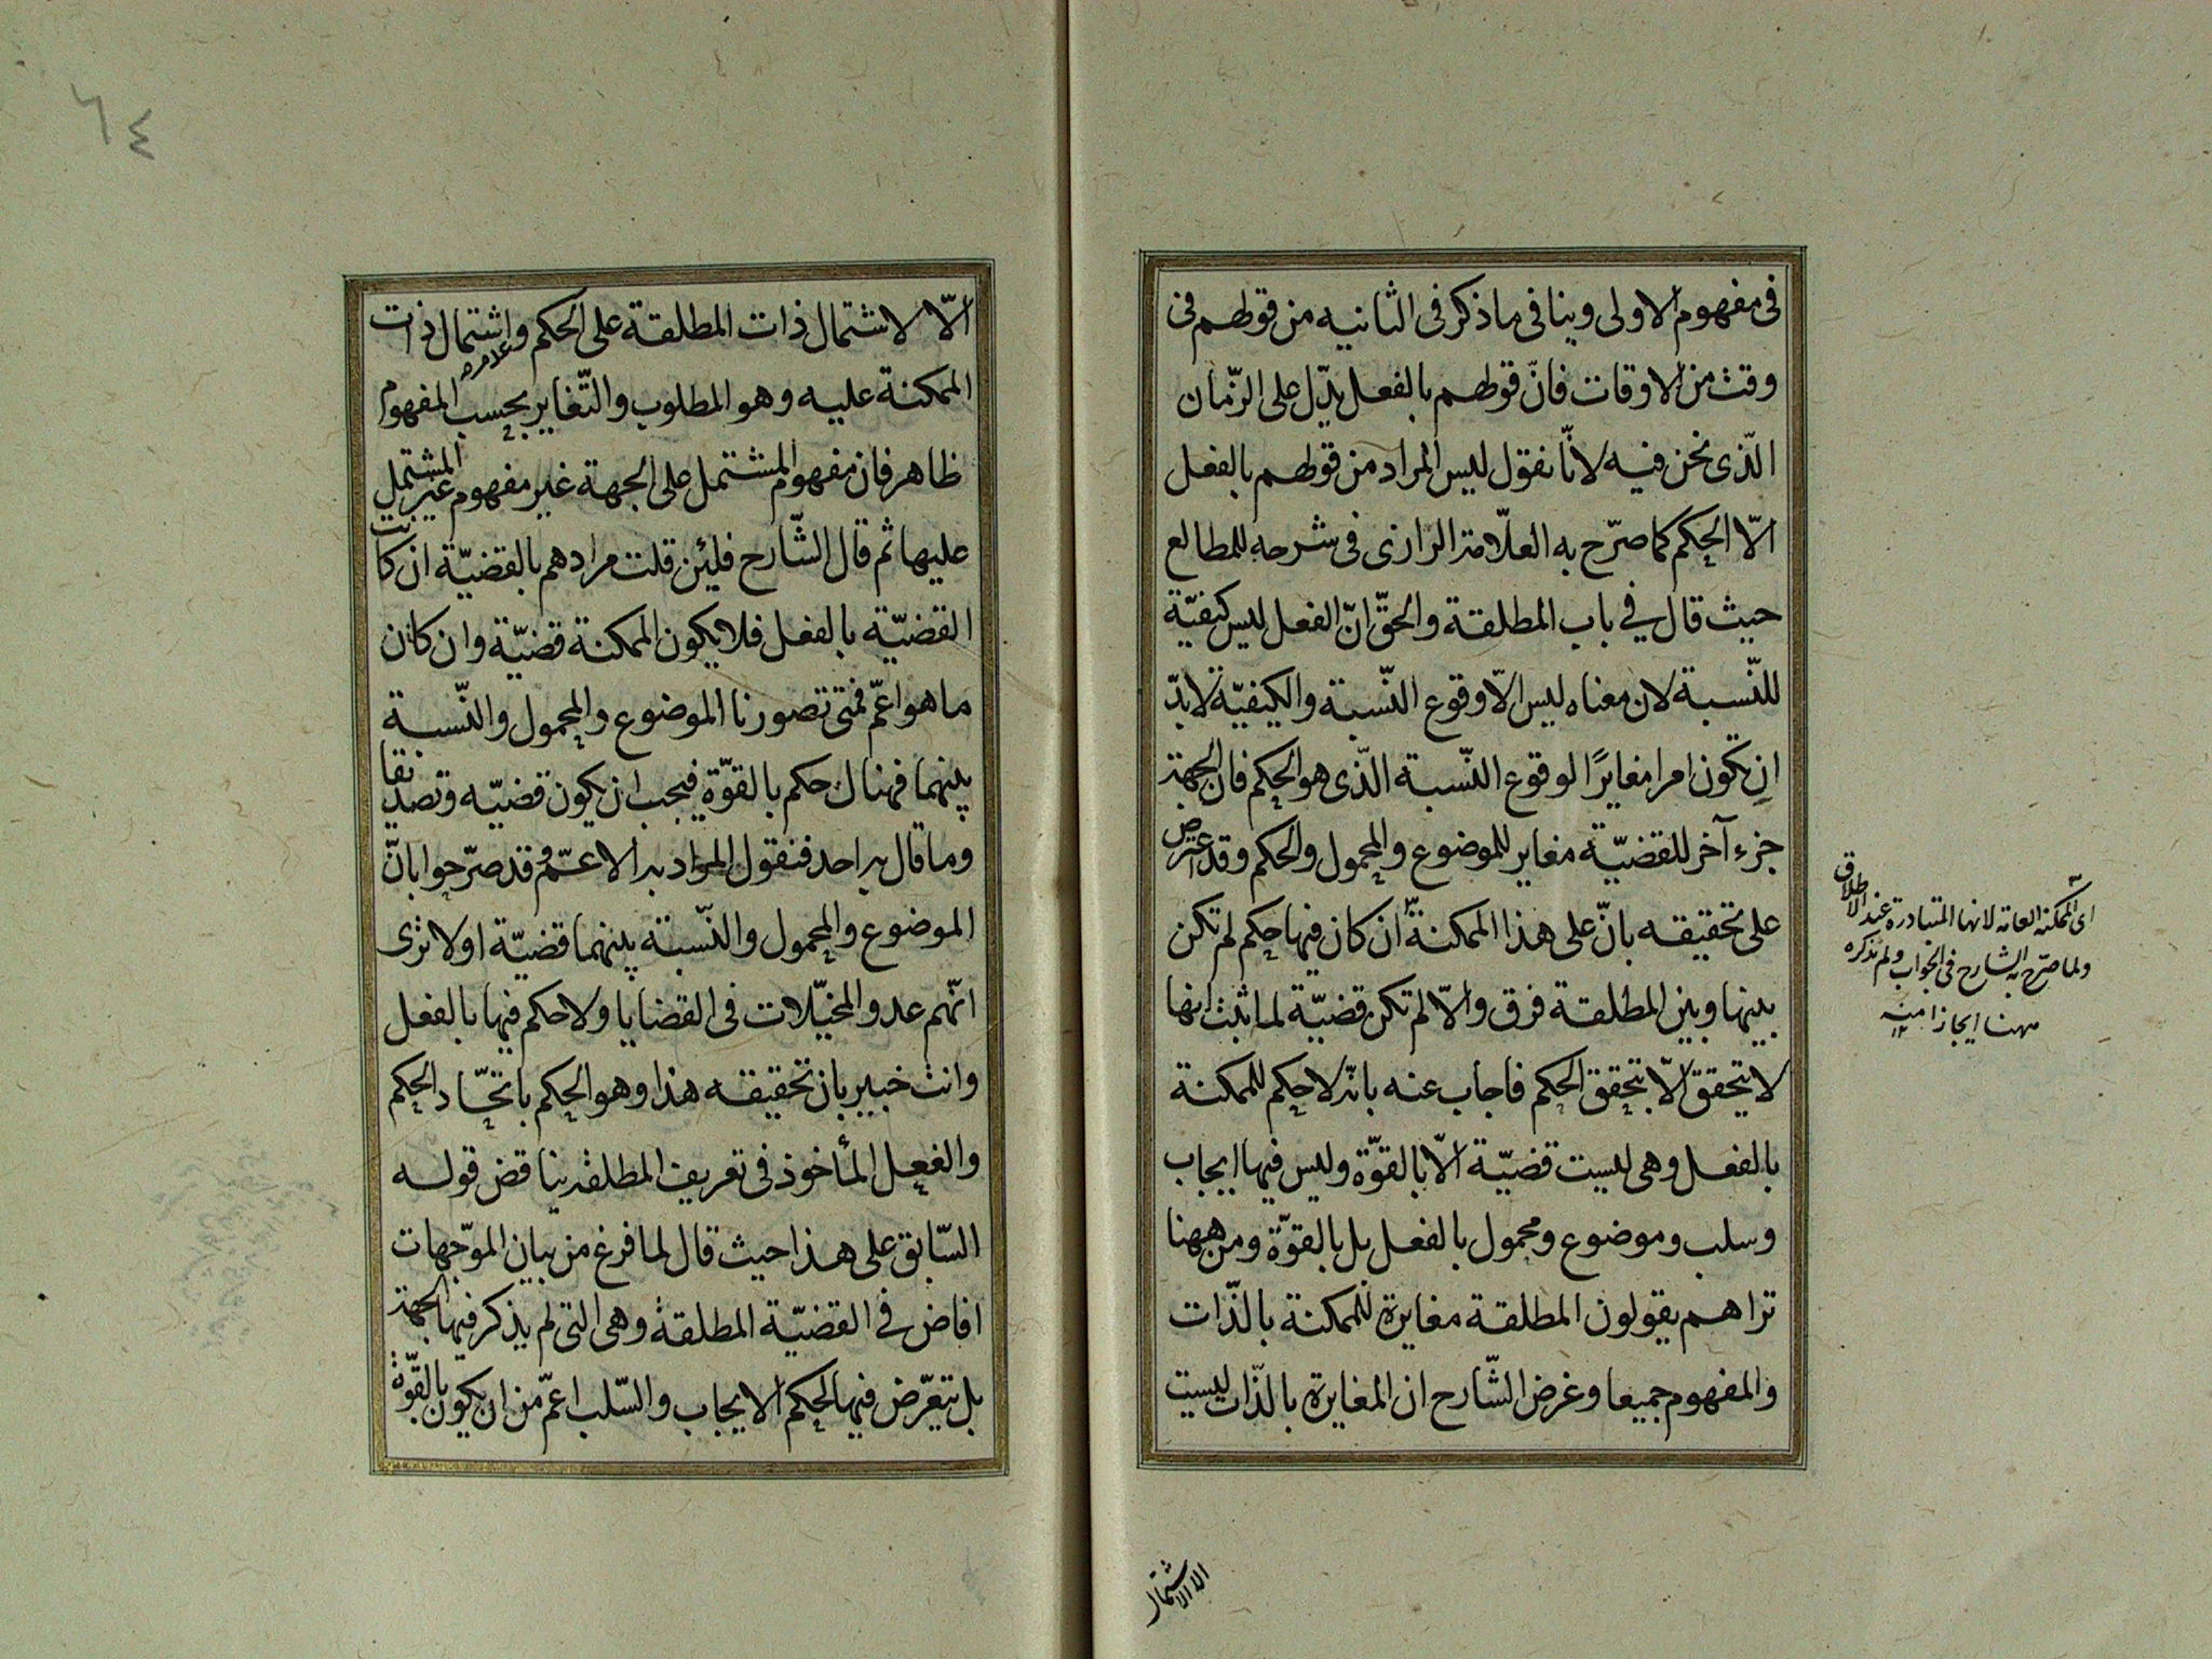 فى مفهوم الاولى وينافى ما ذكر فى الثانيه من قولهم فى
وقت من الاوقات فانّ قولهم بالفعل يدّل على الزّمان
الّذى نحن فيه لانّا نقول ليس المراد من قولهم بالفعل
الّا الحكم كما صرّح به العلّامة الرازى فى شرحه للمطالع
حيث قال فى باب المطلقة والحقّ انّ الفعل ليس كيفيّة
للنّسبة لان معناه ليس الّا وقوع النّسبة والكيفيّة لا بدّ
ان تكون امرا مغايرًا لوقوع النّسبة الّذى هو الحكم فان الجهة
جزء آخر للقضيّة مغاير للموضوع والمحمول والحكم وقد اعترض
على تحقيقه بانّ على هذا الممكنة ان كان فيها حكم لم تكن
بينها وبين المطلقة فرق والّا لم تكن قضيّة لما ثبت انها
لا يتحقق الّا بتحقق الحكم فاجاب عنه بانّه لا حكم للممكنة
بالفعل وهى ليست قضيّة الّا بالقوّة وليس فيها ايجاب
وسلب وموضوع ومحمول بالفعل بل بالقوّة ومن ههنا
تراهم يقولون المطلقة مغايرة للممكنة بالذّات
والمفهوم جميعا وغرض الشّارح ان المغايرة بالذّات ليست
اى الممكنة العامة لانها المتبادرة عند الاطلاق
ولما صرّح به الشارح فى الجواب ولم نذكره
ههنا ايجازا منه
الا لاشتمال
٦٤
الّا لاشتمال ذات المطلقة على الحكم وعدم اشتمال ذات
الممكنة عليه وهو المطلوب والتّغاير بحسب المفهوم
ظاهر فان مفهوم المشتمل على الجهة غير مفهوم غير المشتمل
عليها ثم قال الشّارح فلئن قلت مرادهم بالقضيّة ان كانت
القضيّة بالفعل فلا يكون الممكنة قضيّة وان كان
ما هو اعمّ فمتى تصورنا الموضوع والمحمول والنّسبة
بينهما فهناك حكم بالقوّة فيجب ان يكون قضيّه وتصديقا
وما قال به احد فنقول المراد به الاعمّ وقد صرّحوا بانّ
الموضوع والمحمول والنّسبة بينهما قضيّة اولا ترى
انّهم عدو المخيّلات فى القضايا ولا حكم فيها بالفعل
وانت خبير بان تحقيقه هذا وهو الحكم باتحّاد الحكم
والفعل المأخوذ فى تعريف المطلقة يناقض قوله
السّابق على هذا حيث قال لما فرغ من بيان الموّجهات
افاض فى القضيّة المطلقة وهى التى لم يذكر فيها الجهة
بل يتعرّض فيها لحكم الايجاب والسّلب اعمّ من ان يكون بالقوّة